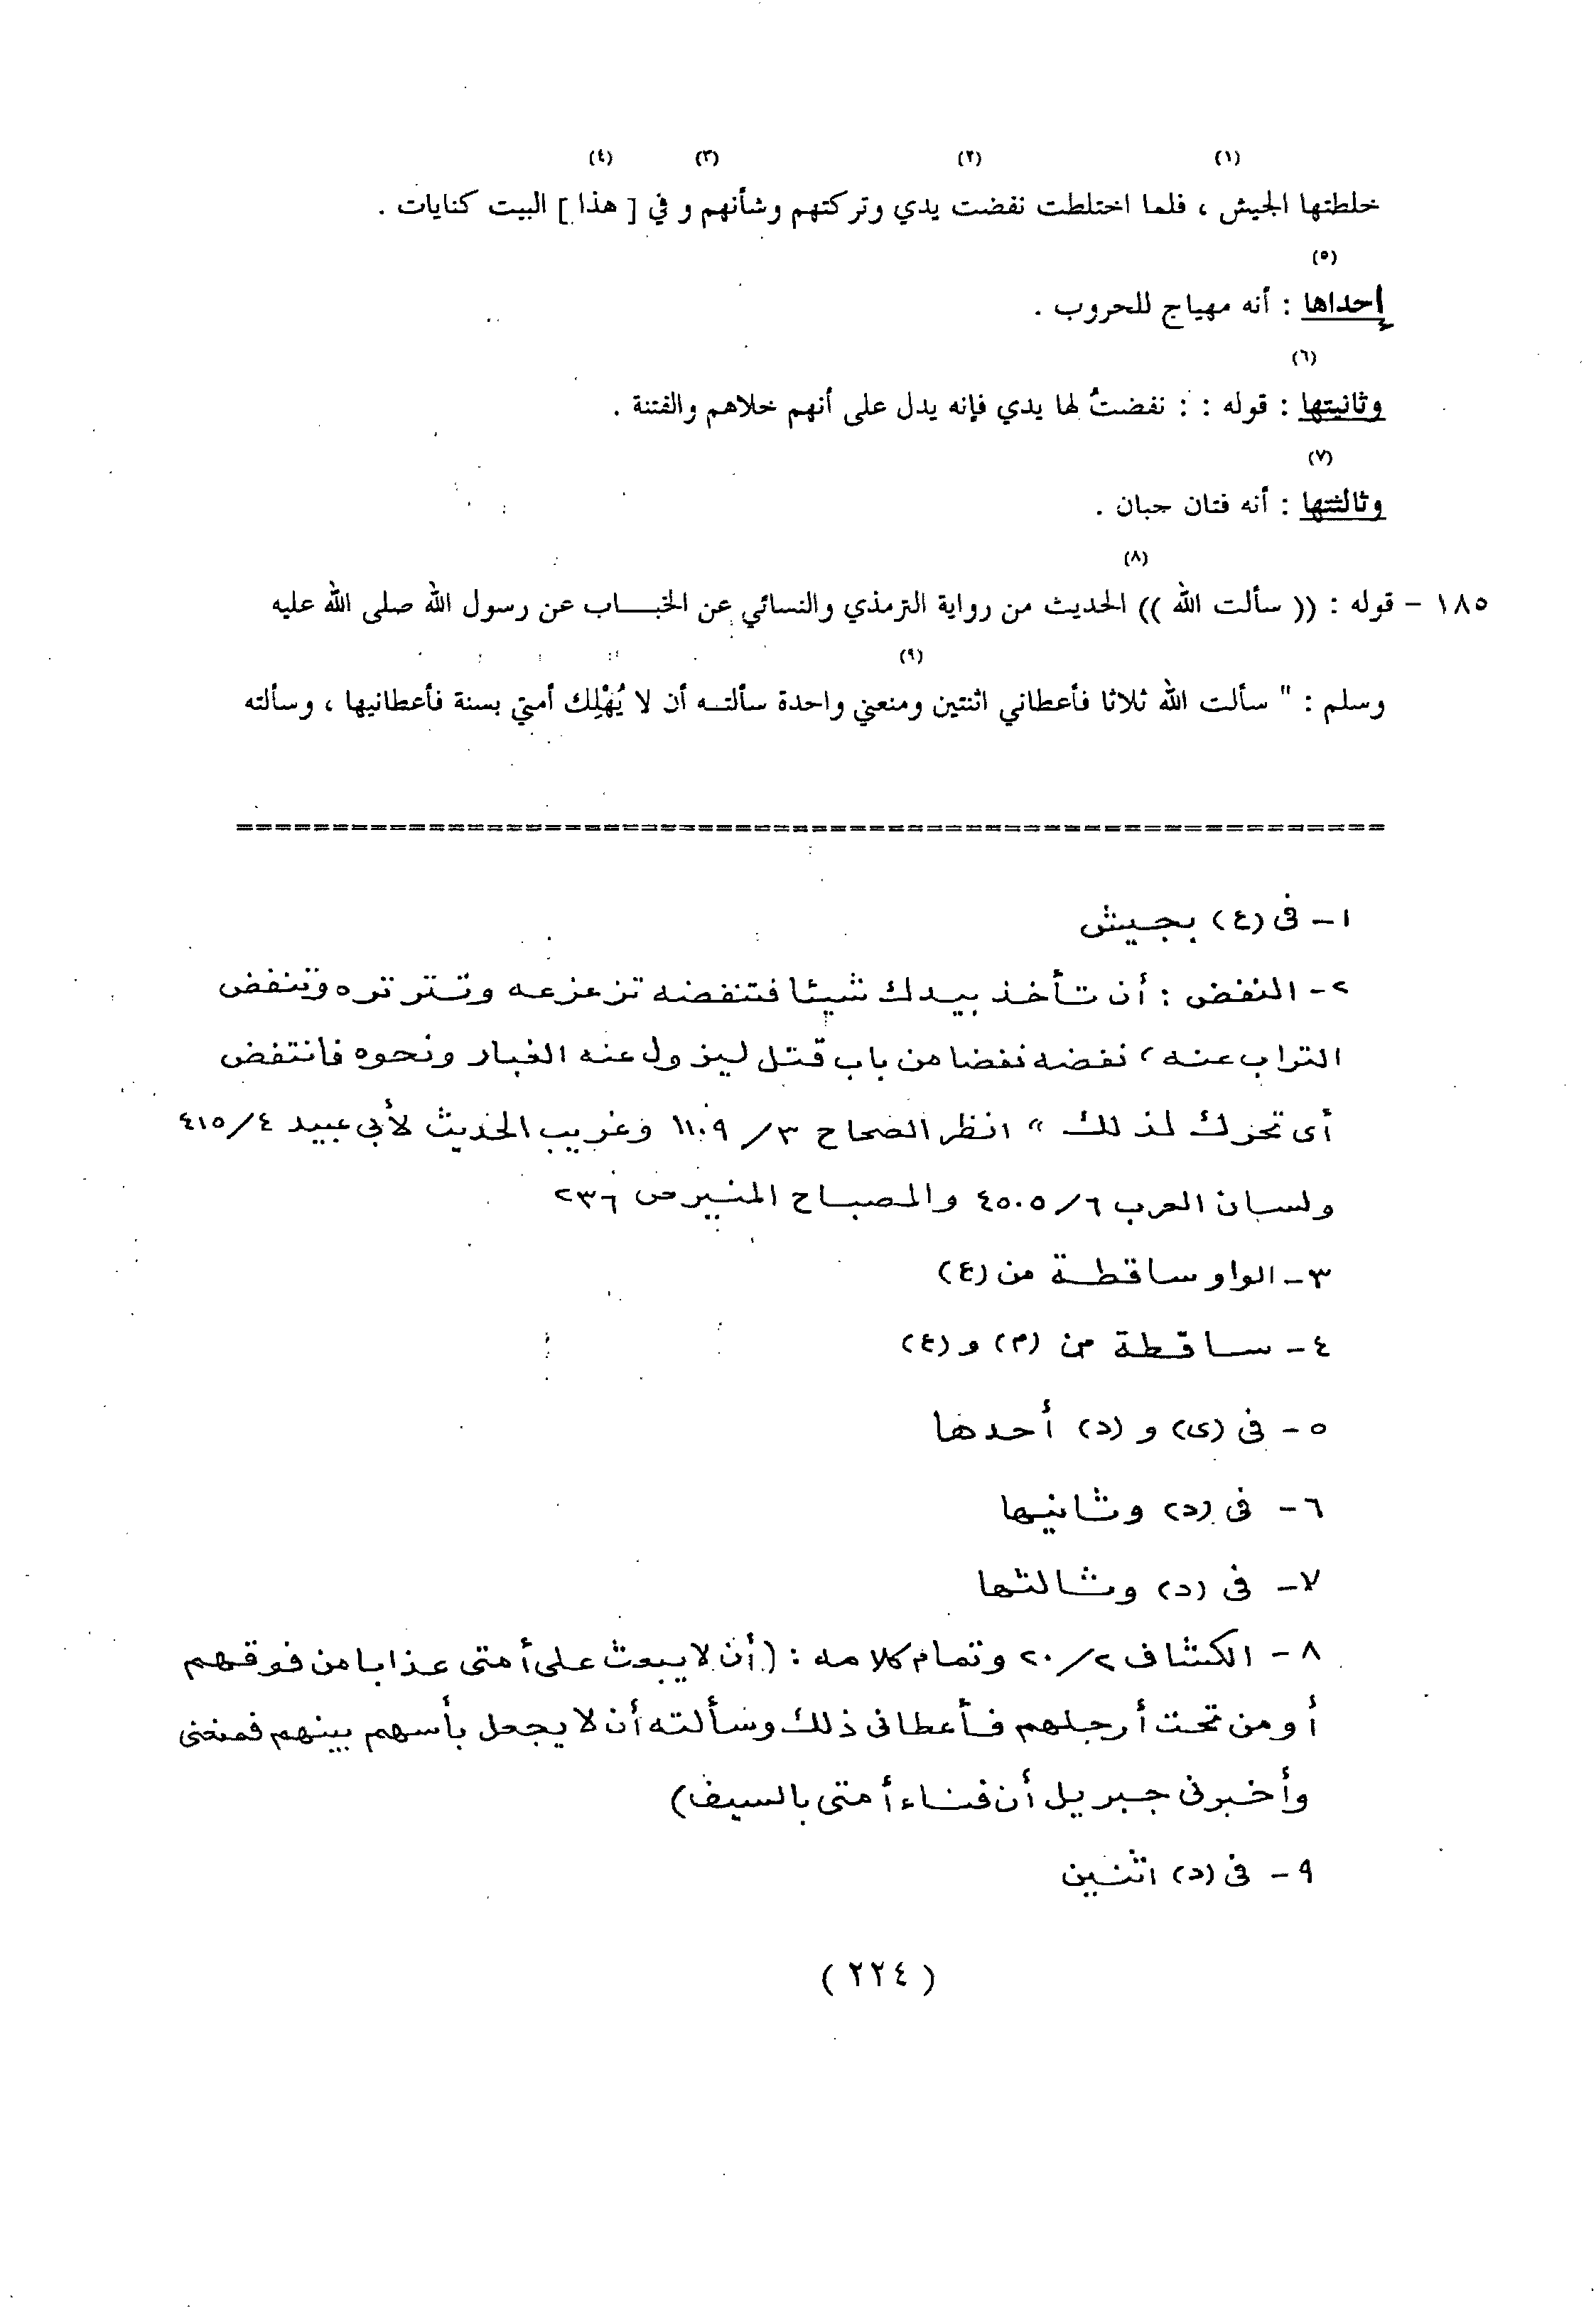 (١) (٢) (٣) (٤)
خلطتها الجيش ، فلما اختلطت نفضت يدي وتركتهم وشأنهم و في [ هذا ] البيت كنايات .
(٥)
إحداها : أنه مهياج للحروب .
(٦)
وثانيتها : قوله : : نفضتُ لها يدي فإنه يدل على أنهم خلاهم والفتنة .
(٧)
وثالثتها : أنه فتان جبان .
(٨)
١٨٥ – قوله : (( سألت الله )) الحديث من رواية الترمذي والنسائي عن الخبـــاب عن رسول الله صلى الله عليه
(٩)
وسلم : " سألت الله ثلاثا فأعطاني اثنتين ومنعني واحدة سألتــه أن لا يُهْلِك أمتي بسنة فأعطانيها ، وسألته
================================================
١ – فى (ع) بجيش
٢ – النفض : أن تأخذ بيدك شيئا فتنفضه تزعزعه وتترتره وتنفض
التراب عنه ، نفضه نفضا من باب قتل ليزول عنه الغبار ونحوه فانتفض
أى تحرك لذلك " انظر الصحاح ٣/ ١١٠٩ وغريب الحديث لأبى عبيد ٤/ ٤١٥
ولسان العرب ٦/ ٤٥٠٥ والمصباح المنير ص ٢٣٦
٣ – الواو ساقطة من (ع)
٤ – ساقطة من (م) و (ع)
٥ – فى (ى) و (د) أحدها
٦ – فى (د) وثانيها
٧ – فى (د) وثالثها
٨ – الكشاف ٢/ ٢٠ وتمام كلامه : (أن لا يبعث على أمتى عذابا من فوقهم
أو من تحت أرجلهم فأعطانى ذلك وسألته أن لا يجعل بأسهم بينهم فمنعنى
وأخبرنى جبريل أن فناء أمتى بالسيف)
٩ – فى (د) اثنين
( ٢٢٤ )